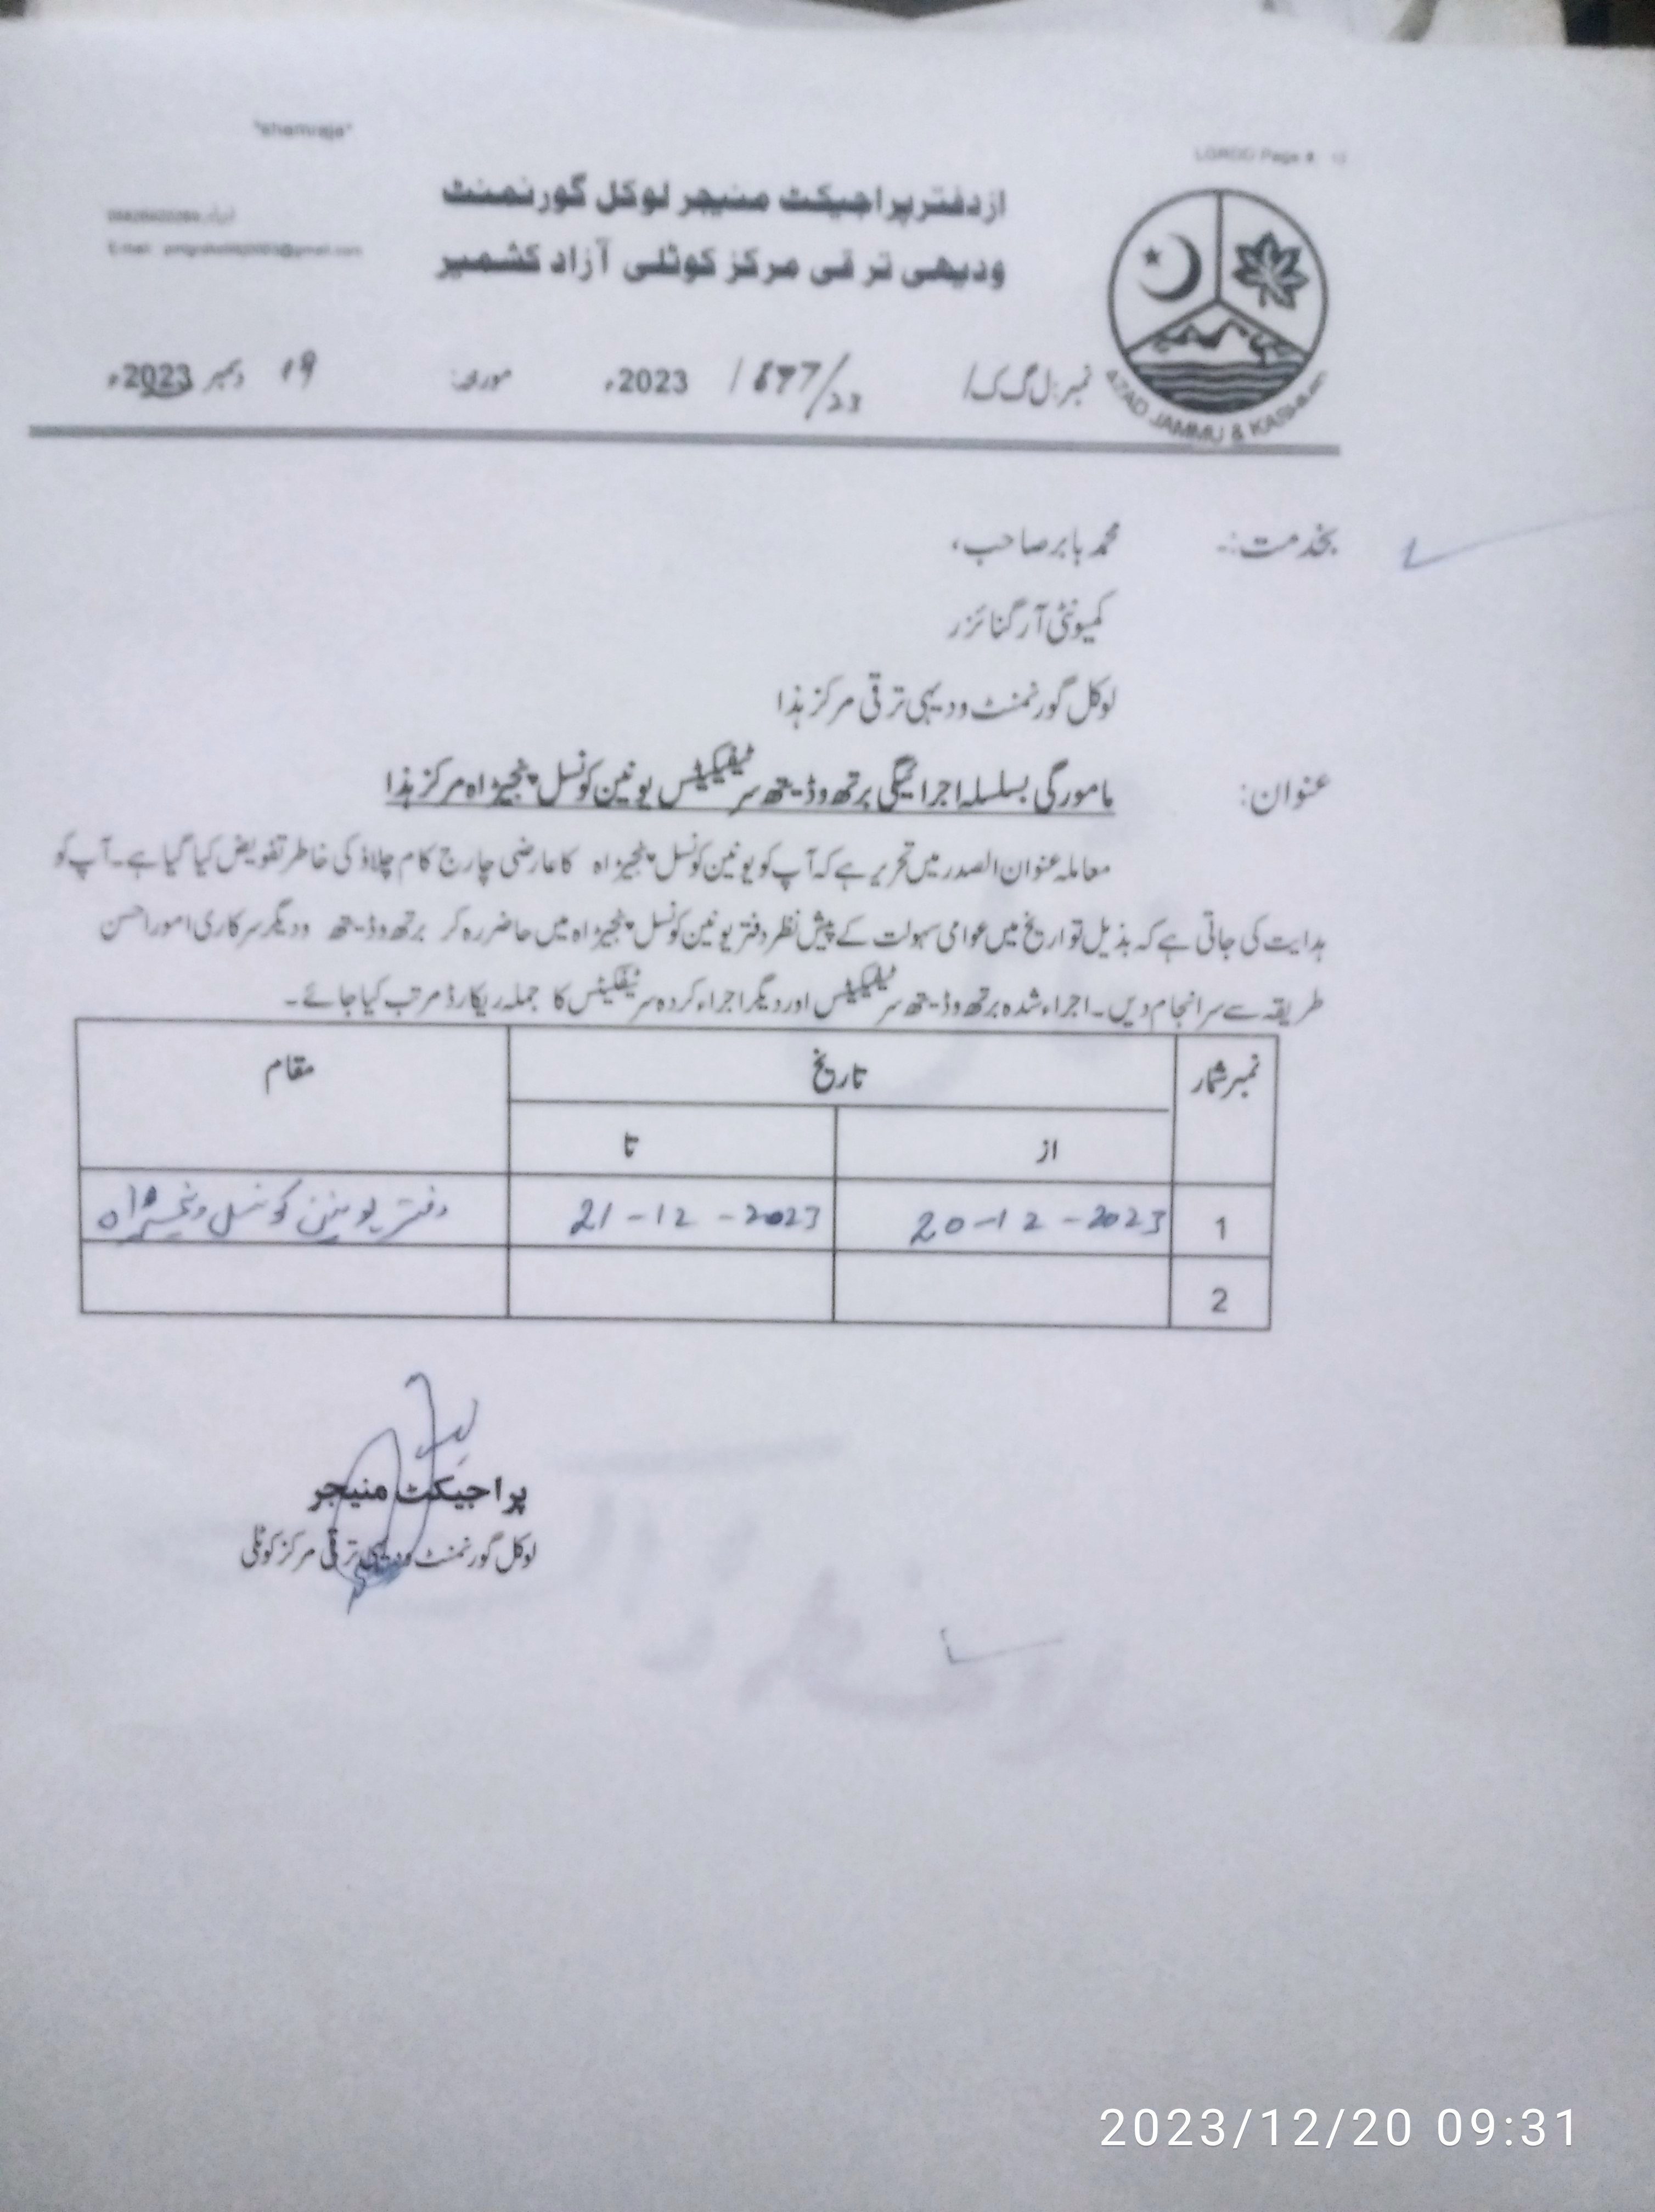 "shamraja"
LGRDD Page #
از دفتر پراجیکٹ منیجر لوکل گورنمنٹ
ودیہی ترقی مرکز کوٹلی آزاد کشمیر
E-mail:
AZAD JAMMU & KASHMIR
نمبر: ل گ ک / 677/23 / 2023ء مورخہ: 19 دسمبر 2023ء
بخدمت:۔ محمد بابر صاحب،
کمیونٹی آرگنائزر
لوکل گورنمنٹ ودیہی ترقی مرکز ہذا
عنوان: مامورگی بسلسلہ اجرائیگی برتھ وڈیتھ سرٹیفکیٹس یونین کونسل پنجیڑاہ مرکز ہذا
معاملہ عنوان الصدر میں تحریر ہے کہ آپ کو یونین کونسل پنجیڑاہ کا عارضی چارج کام چلاؤ کی خاطر تفویض کیا گیا ہے۔ آپ کو
ہدایت کی جاتی ہے کہ بذیل تواریخ میں عوامی سہولت کے پیش نظر دفتر یونین کونسل پنجیڑاہ میں حاضر رہ کر برتھ وڈیتھ ودیگر سرکاری امور احسن
طریقہ سے سرانجام دیں۔ اجراء شدہ برتھ وڈیتھ سرٹیفکیٹس اور دیگر اجراء کردہ سرٹیفکیٹس کا جملہ ریکارڈ مرتب کیا جائے۔
نمبر شمار تاریخ مقام
از تا
1 20-12-2023 21-12-2023 دفتر یونین کونسل پنجیڑاہ
2
پراجیکٹ منیجر
لوکل گورنمنٹ ودیہی ترقی مرکز کوٹلی
2023/12/20 09:31